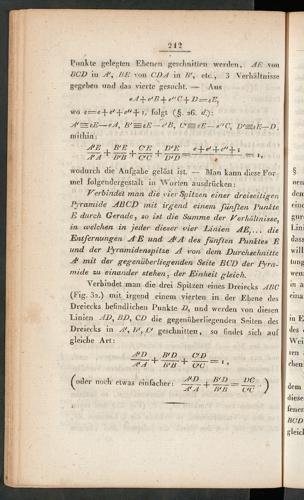 212
Punkte gelegten Ebenen geschnitten werden, AE von
BCD in A', BE von CDA in B', etc., 3 Verhältnisse
gegeben und das vierte gesucht. — Aus
eA + e'B + e''C + D = εE,
wo ε = e + e' + e'' + 1, folgt (§. 26. d.):
A' ≡ εE − eA, B' ≡ εE − e'B, C' ≡ εE − e''C, D' ≡ εE − D,
mithin:
A'E/A'A + B'E/B'B + C'E/C'C + D'E/D'D = (e + e' + e'' + 1)/ε = 1,
wodurch die Aufgabe gelöst ist. — Man kann diese For-
mel folgendergestalt in Worten ausdrücken:
Verbindet man die vier Spitzen einer dreiseitigen
Pyramide ABCD mit irgend einem fünften Punkte
E durch Gerade, so ist die Summe der Verhältnisse,
in welchen in jeder dieser vier Linien AE,... die
Entfernungen A'E und A'A des fünften Punktes E
und der Pyramidenspitze A von dem Durchschnitte
A' mit der gegenüberliegenden Seite BCD der Pyra-
mide zu einander stehen, der Einheit gleich.
Verbindet man die drei Spitzen eines Dreiecks ABC
(Fig. 32.) mit irgend einem vierten in der Ebene des
Dreiecks befindlichen Punkte D, und werden von diesen
Linien AD, BD, CD die gegenüberliegenden Seiten des
Dreiecks in A', B', C' geschnitten, so findet sich auf
gleiche Art:
A'D/A'A + B'D/B'B + C'D/C'C = 1,
(oder noch etwas einfacher: A'D/A'A + B'D/B'B = DC/C'C.)